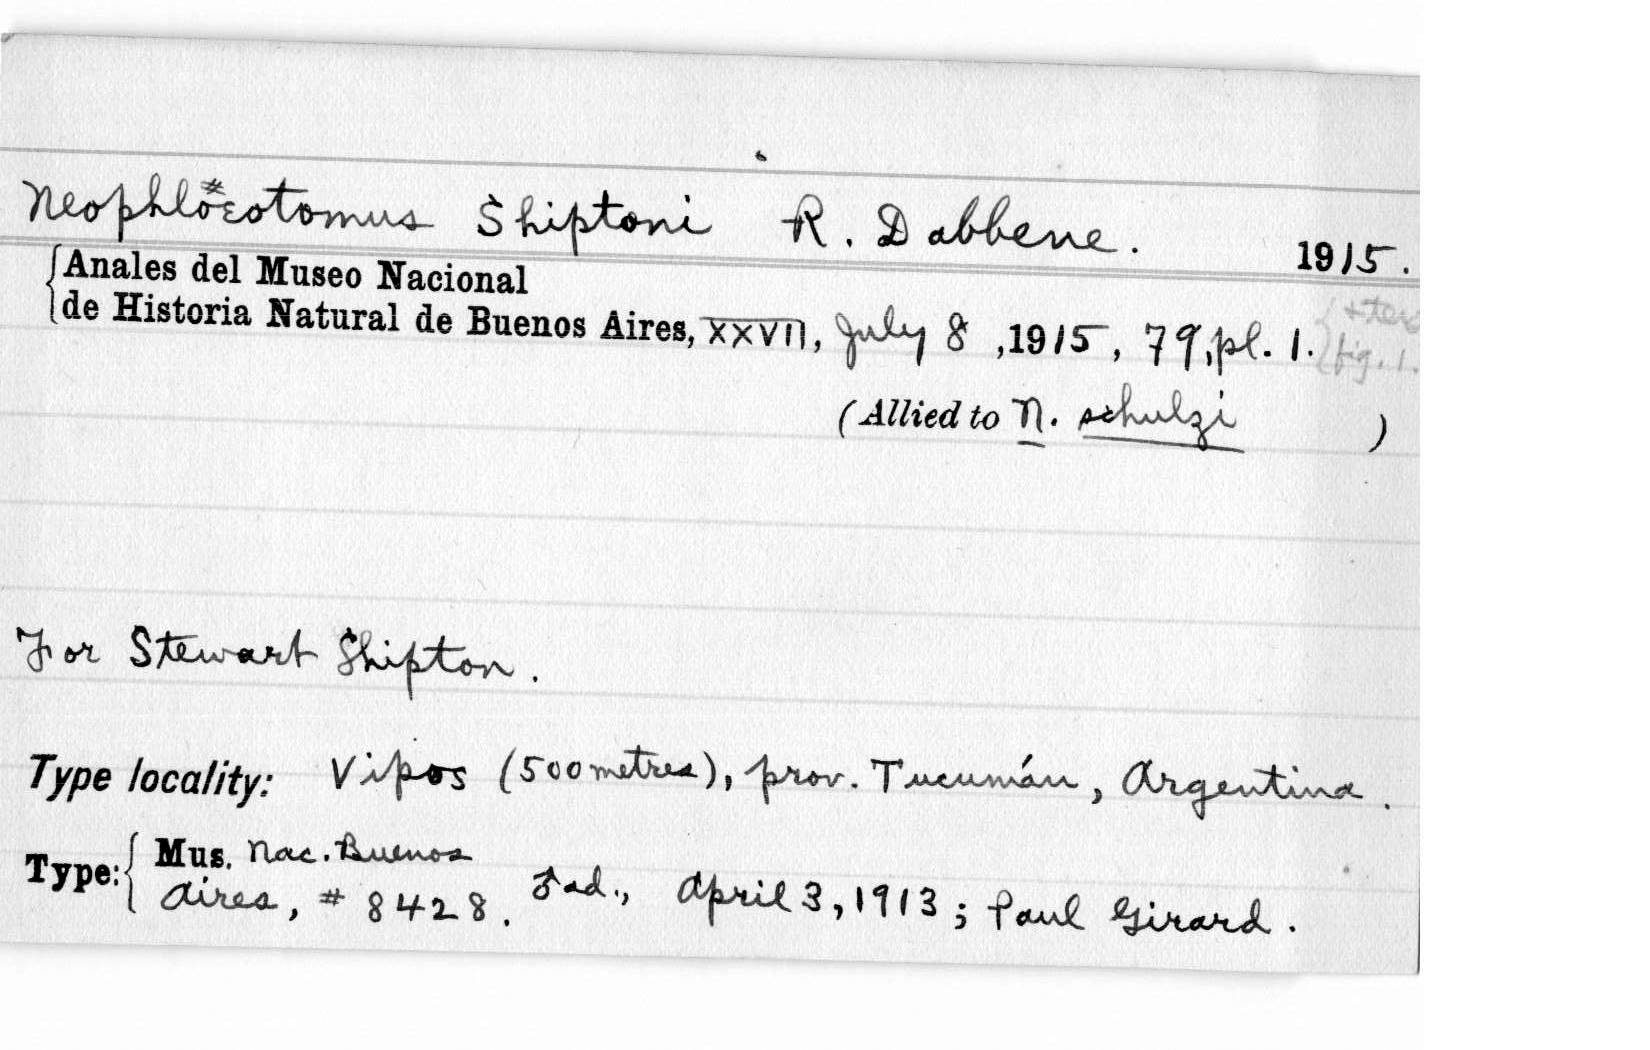 Neophlœotomus Shiptoni R. Dabbene. 1915.
Anales del Museo Nacional
de Historia Natural de Buenos Aires, XXVII, July 8, 1915, 79, pl. 1. {+ tex
fig. 1.
(Allied to N. schulzi )
For Stewart Shipton.
Type locality: Vipos (500 metres), prov. Tucumán, Argentina.
Type: { Mus. Nac. Buenos
Aires, # 8428. ♂ ad., April 3, 1913; Paul Girard.